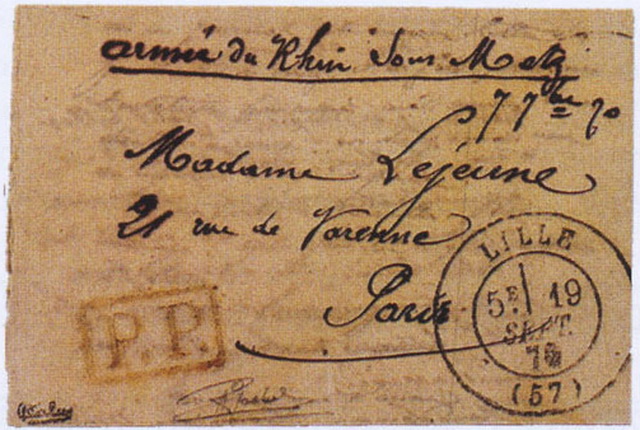 armée du Rhin sous Metz
7 7bre 70
Madame Lejeune
21 rue de Varenne
Paris
LILLE
5E 19
SEPT.
70
(57)
P.P.